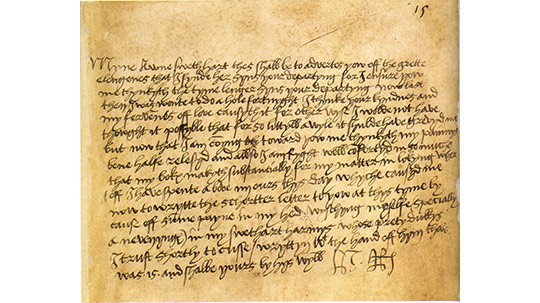 15
Myne awne swethart thes shalbe to advertes yow off the grette
elengenes that I fynde her syns your departyng for I ensure yow
me thynkyth the tyme lenger syns your departyng now last
then I was wonte to do a hole fortnyght I thynke your kyndnes and
my fervents off love causyth it for other wyse I wolde not have
thowght it possyble that for so lyttyll a wyle it shulde have grevyd me
but now that I am comyng toward yow me thynkyth my paynnys
bene halfe relesyd and allso I am ryght well comfortyd in so muche
that my boke makyth substancially for my matter in wryting wheroff
I have spente above iiii ours thys day whyche causyd me
now to wrytte the schortter letter to yow at thys tyme by
cause off summe payne in my hed wisshyng my selfe specially
a nevennyng in my swethart harmys whose prety dukkys
I trust shortly to cusse writtyn with the hand off hym that
was is and shalbe yours by hys wyll HR